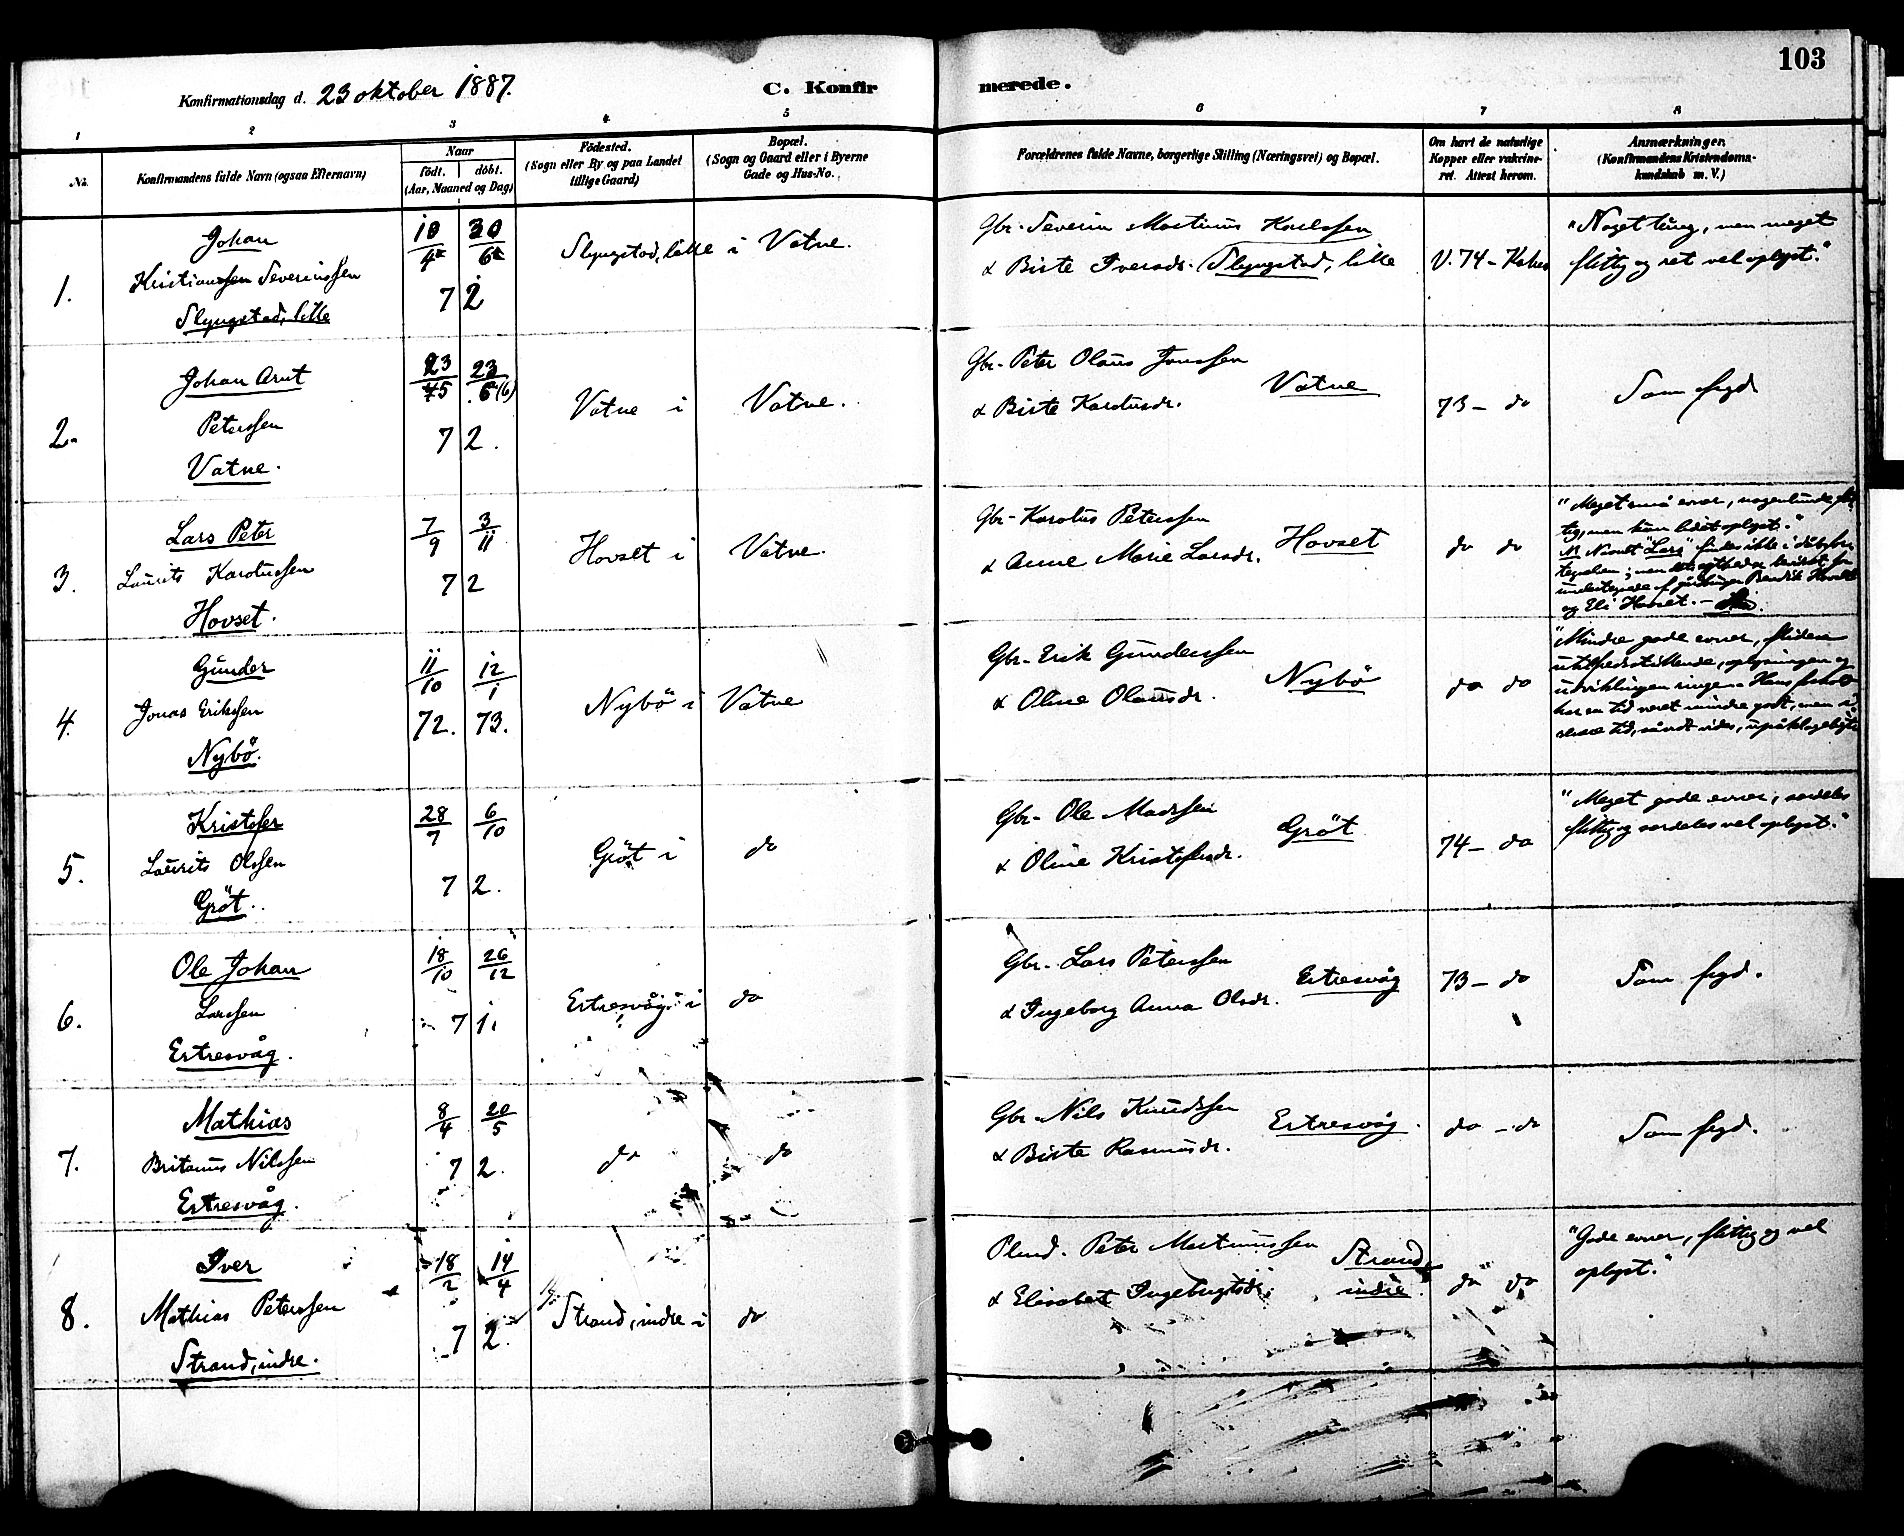 103
Konfirmationsdag d. 23 oktober 1887.
C. Konfirmerede.
1 2 3 4 5 6 7 8
No.
Konfirmandens fulde Navn (ogsaa Efternavn)
Naar
födt. döbt.
(Aar, Maaned og Dag)
Födested.
(Sogn eller By og paa Landet
tillige Gaard.)
Bopæl.
(Sogn og Gaard eller i Byerne
Gade og Hus-No.
Forældrenes fulde Navne, borgerlige Stilling (Næringsvei) og Bopæl.
Om havt de naturlige
Kopper eller vakcine-
ret. Attest herom.
Anmærkninger.
(Konfirmandens Kristendoms-
kundskab m. V.)
1.
Johan
Kristianssen Severinssen
Slyngstad, lille
10/4 30/6
72
Slyngstad, lille i Vatne.
Gbr. Severin Martinus Karlssen
& Birte Iversdr. Slyngstad, lille
V. 74 -
"Noget tung, men meget
flittig og ret vel oplyst."
2.
Johan Arnt
Peterssen
Vatne.
23/5 23/6 (6)
72.
Vatne i Vatne.
Gbr. Peter Olaus Jonssen
& Birte Karolusdr.
Vatne
73 - do
Som fregd.
3.
Lars Peter
Laurits Karolussen
Hovset.
7/9 3/11
72
Hovset i Vatne.
Gbr. Karolus Peterssen
& Anne Marie Larsdr.
Hovset
do do
"Meget små evner, nogenlunde flit-
tig, men kun lidet oplyst."
N Navnet "Lars" findes ikke i dåbsfor-
tegnelsen; men
undertegnede af gårdbruger Bendik Hovset
og Eli Hovset. -
4.
Gunder
Jonas Erikssen
Nybö.
11/10 12/1
72. 73.
Nybö i Vatne
Gbr. Erik Gunderssen
& Oline Olausdr.
Nybö
do do
"Mindre gode evner, fliden
utilfredsstillende, oplysningen og
udviklingen ringe. Hans forhold
har en tid været mindre godt, men i
sidste tid, såvidt vides, upåklageligt"
5.
Kristofer
Laurits Olssen
Gröt.
28/7 6/10
72.
Gröt i do
Gbr. Ole Madssen
& Oline Kristofersdr.
Gröt
74 - do
"Meget gode evner, særdeles
flittig og særdeles vel oplyst."
6.
Ole Johan
Larssen
Ertresvåg.
18/10 26/12
71.
Ertresvåg i do
Gbr. Lars Peterssen
& Ingeborg Anna Olsdr.
Ertresvåg
73 - do
Som fregd.
7.
Mathias
Britanus Nilssen
Ertresvåg.
8/4 20/5
72.
do do
Gbr. Nils Knudssen
& Birte Rasmusdr.
Ertresvåg.
do - do
Som fregd.
8.
Iver
Mathias Peterssen
Strand, indre.
18/2 14/4
72.
Strand, indre i do
Plmd. Peter Martinussen
& Elisabert Ingebrigtsdr.
Strand
indre.
do do
"Gode evner, flittig og vel
oplyst."